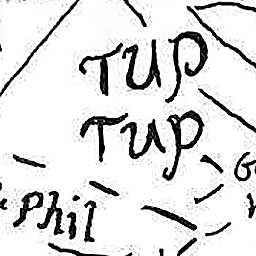 TUP
TUP
Phil